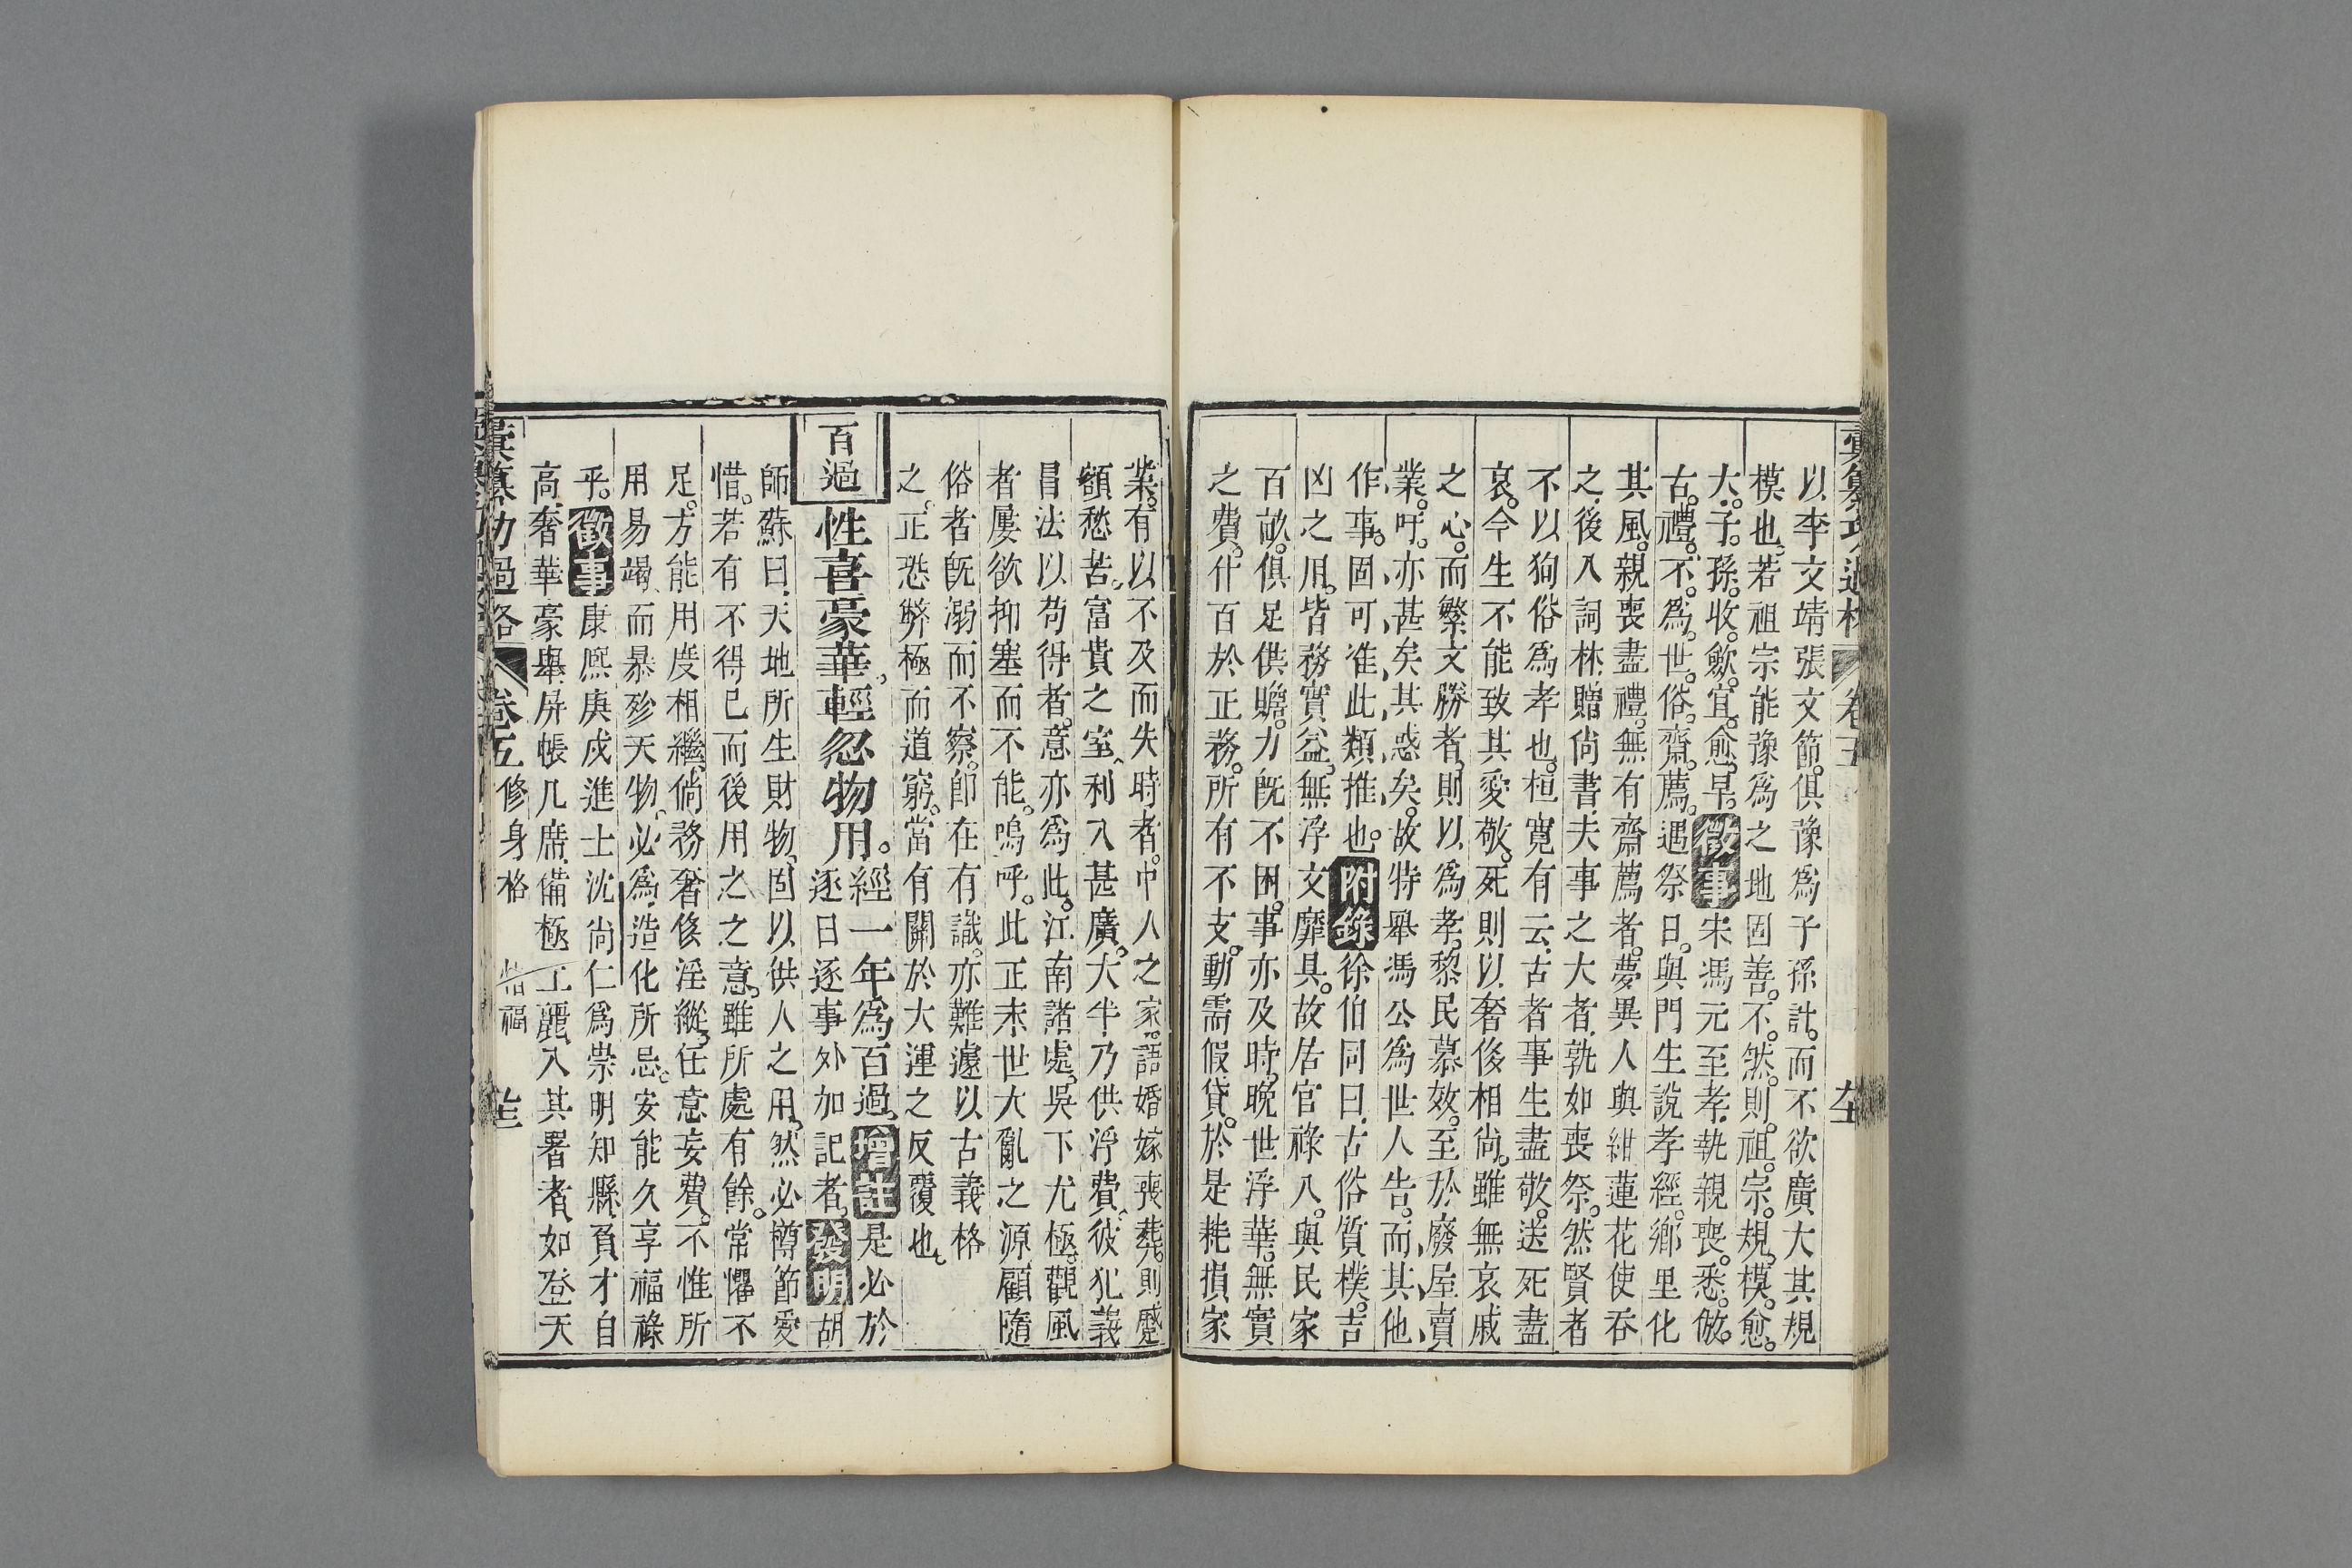 彙纂功過格 卷五
以李文靖張文節。俱豫爲子孫計。而不欲廣大其規
模也。若祖宗能豫爲之地固善。不。然。則。祖。宗。規。模。愈。
大。子。孫。收。歛。宜。愈。早。徵事宋馮元至孝。執親喪。悉。倣。
古。禮。不。爲。世。俗。齋。薦。遇祭日。與門生說孝經。鄉里化
其風。親喪盡禮。無有齋薦者。夢異人與紺蓮花使吞
之。後入詞林。贈尚書。夫事之大者。孰如喪祭。然賢者
不以狥俗爲孝也。桓寬有云。古者事生盡敬。送死盡
哀。今生不能致其愛敬。死則以奢侈相尚。雖無哀戚
之心。而繁文勝者。則以爲孝。黎民慕效。至於廢屋賣
業。吁。亦甚矣其惑矣。故特舉馮公爲世人告。而其他
作事。固可准此類推也。附錄徐伯同曰。古俗質樸。吉
凶之用。皆務實益。無浮文靡具。故居官祿入。與民家
百畝。俱足供贍。力旣不困。事亦及時。晚世浮華。無實
之費。什百於正務。所有不支。動需假貸。於是耗損家
業。有以不及而失時者。中人之家。語婚嫁喪葬。則蹙
額愁苦。富貴之室。利入甚廣。大半乃供浮費。彼犯義
冒法以苟得者。意亦爲此。江南諸處。吳下尤極。觀風
者屢欲抑塞而不能。嗚呼。此正末世大亂之源。顧隨
俗者旣溺而不察。卽在有識。亦難遽以古義格
之。正恐弊極而道窮。當有關於大運之反覆也。
百過
性喜豪華。輕忽物用。經一年爲百過。逐日逐事外加記者。增註是必於
發明胡
師蘇曰。天地所生財物。固以供人之用。然必樽節愛
惜。若有不得已而後用之之意。雖所處有餘。常懼不
足。方能用度相繼。倘務奢侈淫縱。任意妄費。不惟所
用易竭。而暴殄天物。必爲造化所忌。安能久享福祿
乎。徵事康熙庚戌進士沈尚仁爲崇明知縣。負才自
高。奢華豪舉。屏帳几席。備極工麗。入其署者。如登天
彙纂功過格 卷五 修身格 惜福